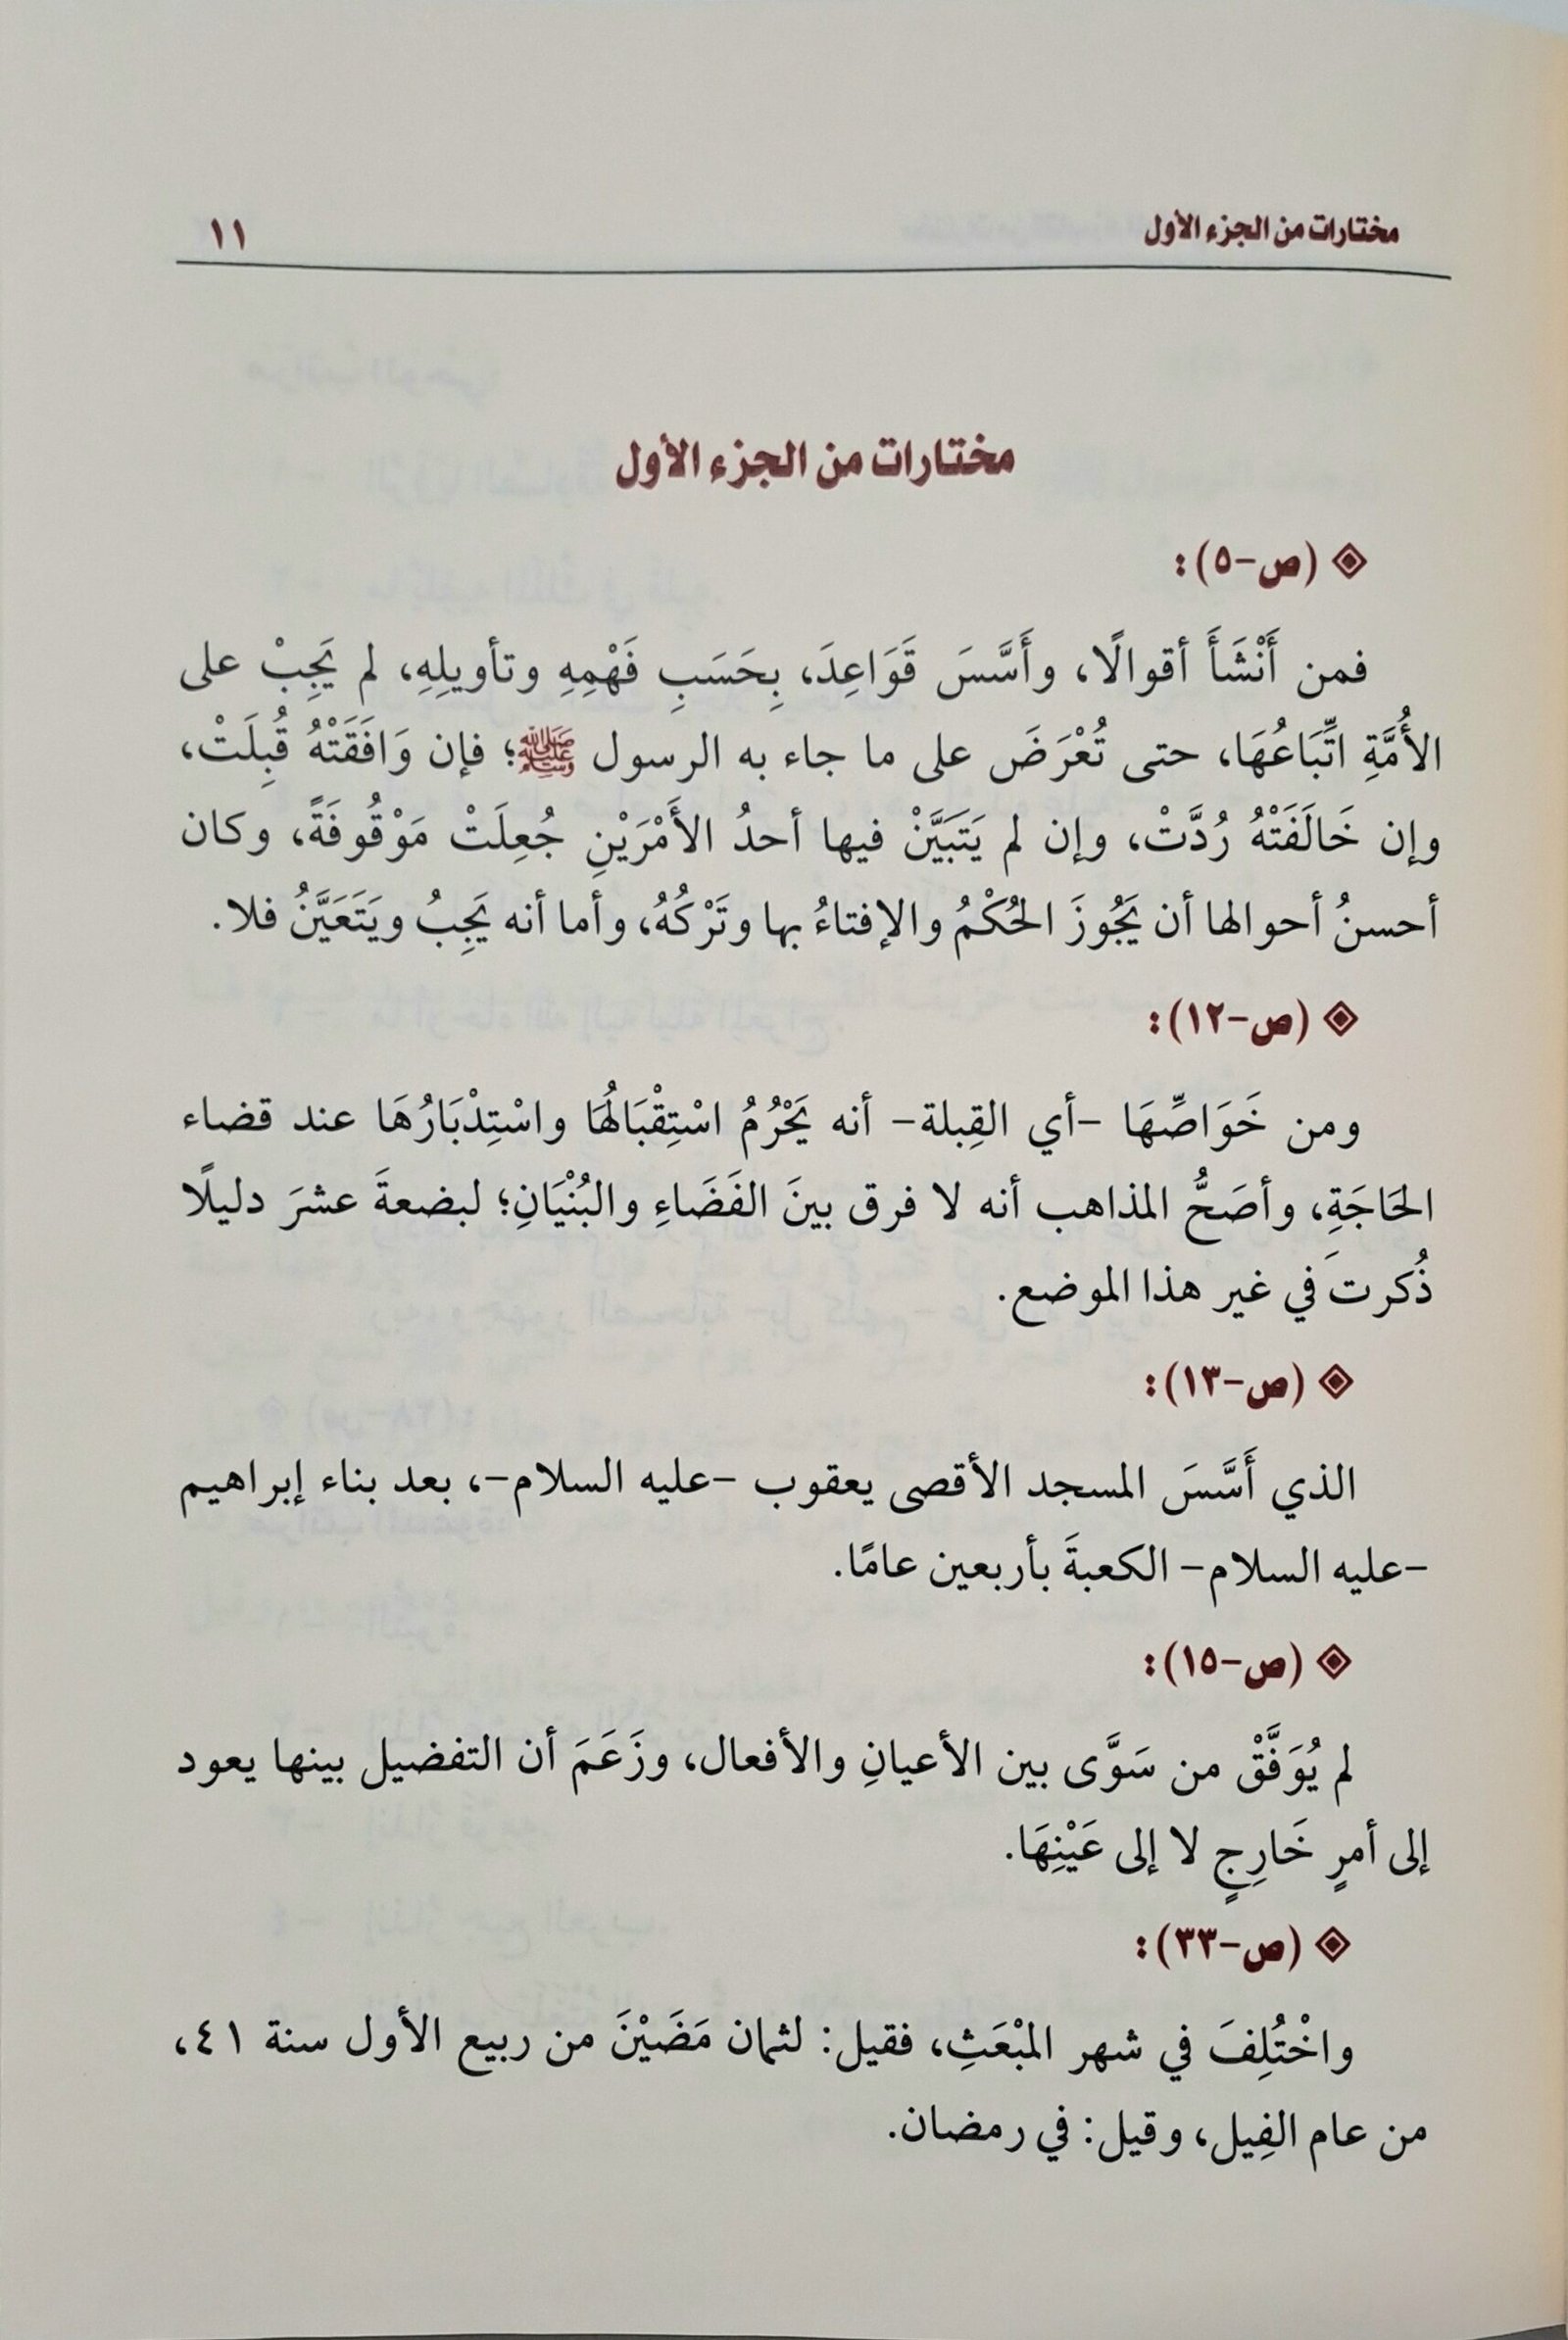 مختارات من الجزء الأول ١١
مختارات من الجزء الأول
(ص-٥):
فمن أَنْشَأَ أقوالًا، وأَسَّسَ قَوَاعِدَ، بِحَسَبِ فَهْمِهِ وتأويلِهِ، لم يَجِبْ على
الأُمَّةِ اتِّبَاعُهَا، حتى تُعْرَضَ على ما جاء به الرسول ﷺ؛ فإن وَافَقَتْهُ قُبِلَتْ،
وإن خَالَفَتْهُ رُدَّتْ، وإن لم يَتَبَيَّنْ فيها أحدُ الأَمْرَيْنِ جُعِلَتْ مَوْقُوفَةً، وكان
أحسنُ أحوالها أن يَجُوزَ الحُكْمُ والإفتاءُ بها وتَرْكُهُ، وأما أنه يَجِبُ ويَتَعَيَّنُ فلا.
(ص-١٢):
ومن خَوَاصِّهَا -أي القِبلة- أنه يَحْرُمُ اسْتِقْبَالُهَا واسْتِدْبَارُهَا عند قضاء
الحَاجَةِ، وأصَحُّ المذاهب أنه لا فرق بينَ الفَضَاءِ والبُنْيَانِ؛ لبضعةَ عشرَ دليلًا
ذُكرتَ في غير هذا الموضع.
(ص-١٣):
الذي أَسَّسَ المسجد الأقصى يعقوب -عليه السلام-، بعد بناء إبراهيم
-عليه السلام- الكعبةَ بأربعين عامًا.
(ص-١٥):
لم يُوَفَّقْ من سَوَّى بين الأعيانِ والأفعال، وزَعَمَ أن التفضيل بينها يعود
إلى أمرٍ خَارِجٍ لا إلى عَيْنِهَا.
(ص-٣٣):
واخْتُلِفَ في شهر المَبْعَثِ، فقيل: لثمان مَضَيْنَ من ربيع الأول سنة ٤١،
من عام الفِيل، وقيل: في رمضان.